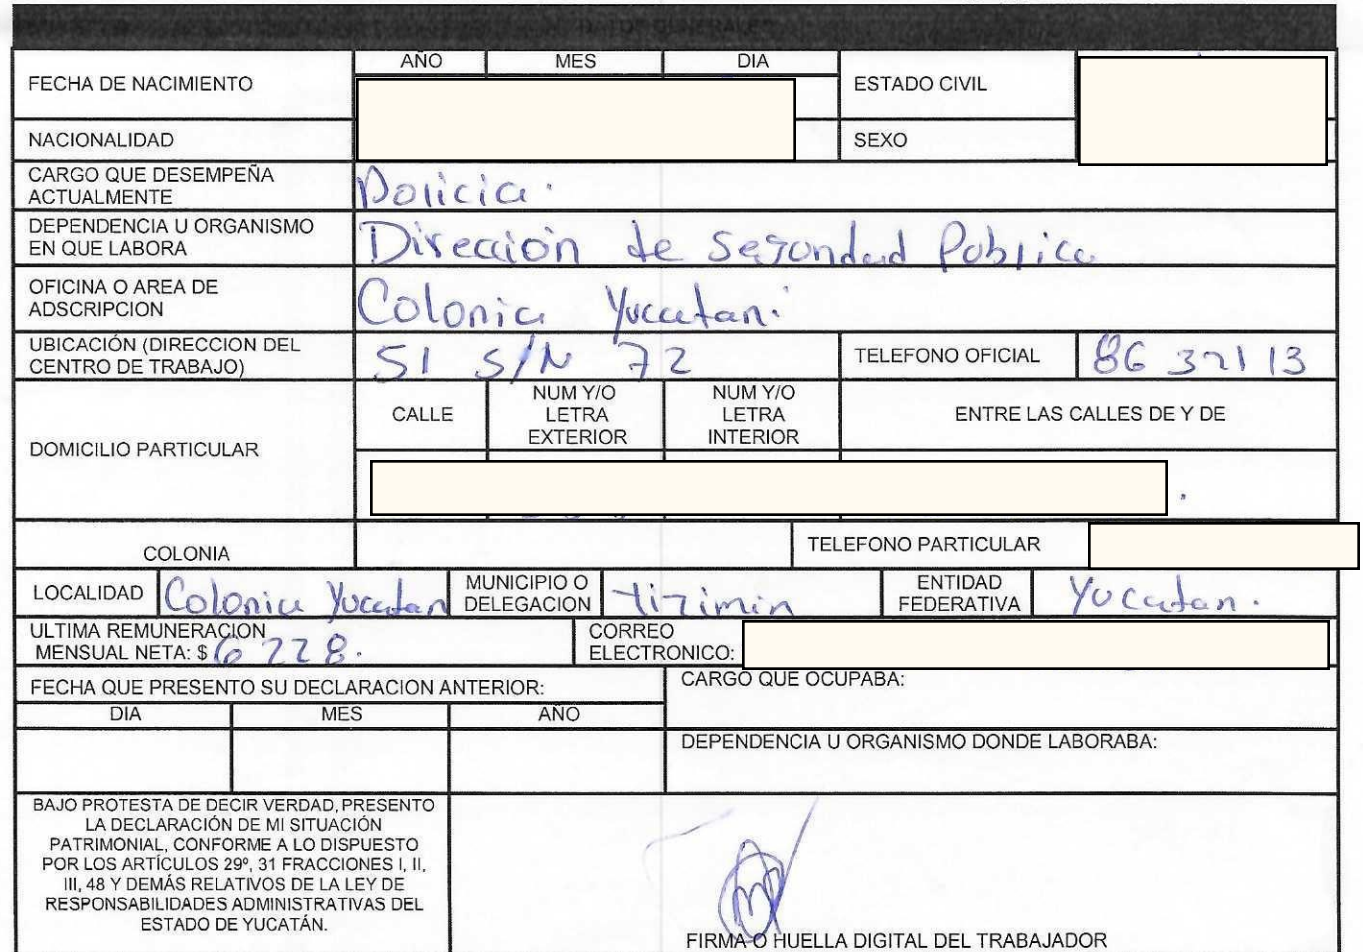 DATOS GENERALES
FECHA DE NACIMIENTO AÑO MES DIA ESTADO CIVIL
NACIONALIDAD SEXO
CARGO QUE DESEMPEÑA
ACTUALMENTE Policia.
DEPENDENCIA U ORGANISMO
EN QUE LABORA Dirección de Seguridad Publica
OFICINA O AREA DE
ADSCRIPCION Colonia Yucatan.
UBICACIÓN (DIRECCION DEL
CENTRO DE TRABAJO) 51 S/N 72 TELEFONO OFICIAL 86 32113
DOMICILIO PARTICULAR
CALLE
NUM Y/O
LETRA
EXTERIOR
NUM Y/O
LETRA
INTERIOR
ENTRE LAS CALLES DE Y DE
COLONIA TELEFONO PARTICULAR
LOCALIDAD Colonia Yucatan
MUNICIPIO O
DELEGACION tizimin
ENTIDAD
FEDERATIVA Yucatan.
ULTIMA REMUNERACION
MENSUAL NETA: $ 6228.
CORREO
ELECTRONICO:
FECHA QUE PRESENTO SU DECLARACION ANTERIOR:
DIA MES AÑO
CARGO QUE OCUPABA:
DEPENDENCIA U ORGANISMO DONDE LABORABA:
BAJO PROTESTA DE DECIR VERDAD, PRESENTO
LA DECLARACIÓN DE MI SITUACIÓN
PATRIMONIAL, CONFORME A LO DISPUESTO
POR LOS ARTÍCULOS 29º, 31 FRACCIONES I, II,
III, 48 Y DEMÁS RELATIVOS DE LA LEY DE
RESPONSABILIDADES ADMINISTRATIVAS DEL
ESTADO DE YUCATÁN.
FIRMA O HUELLA DIGITAL DEL TRABAJADOR